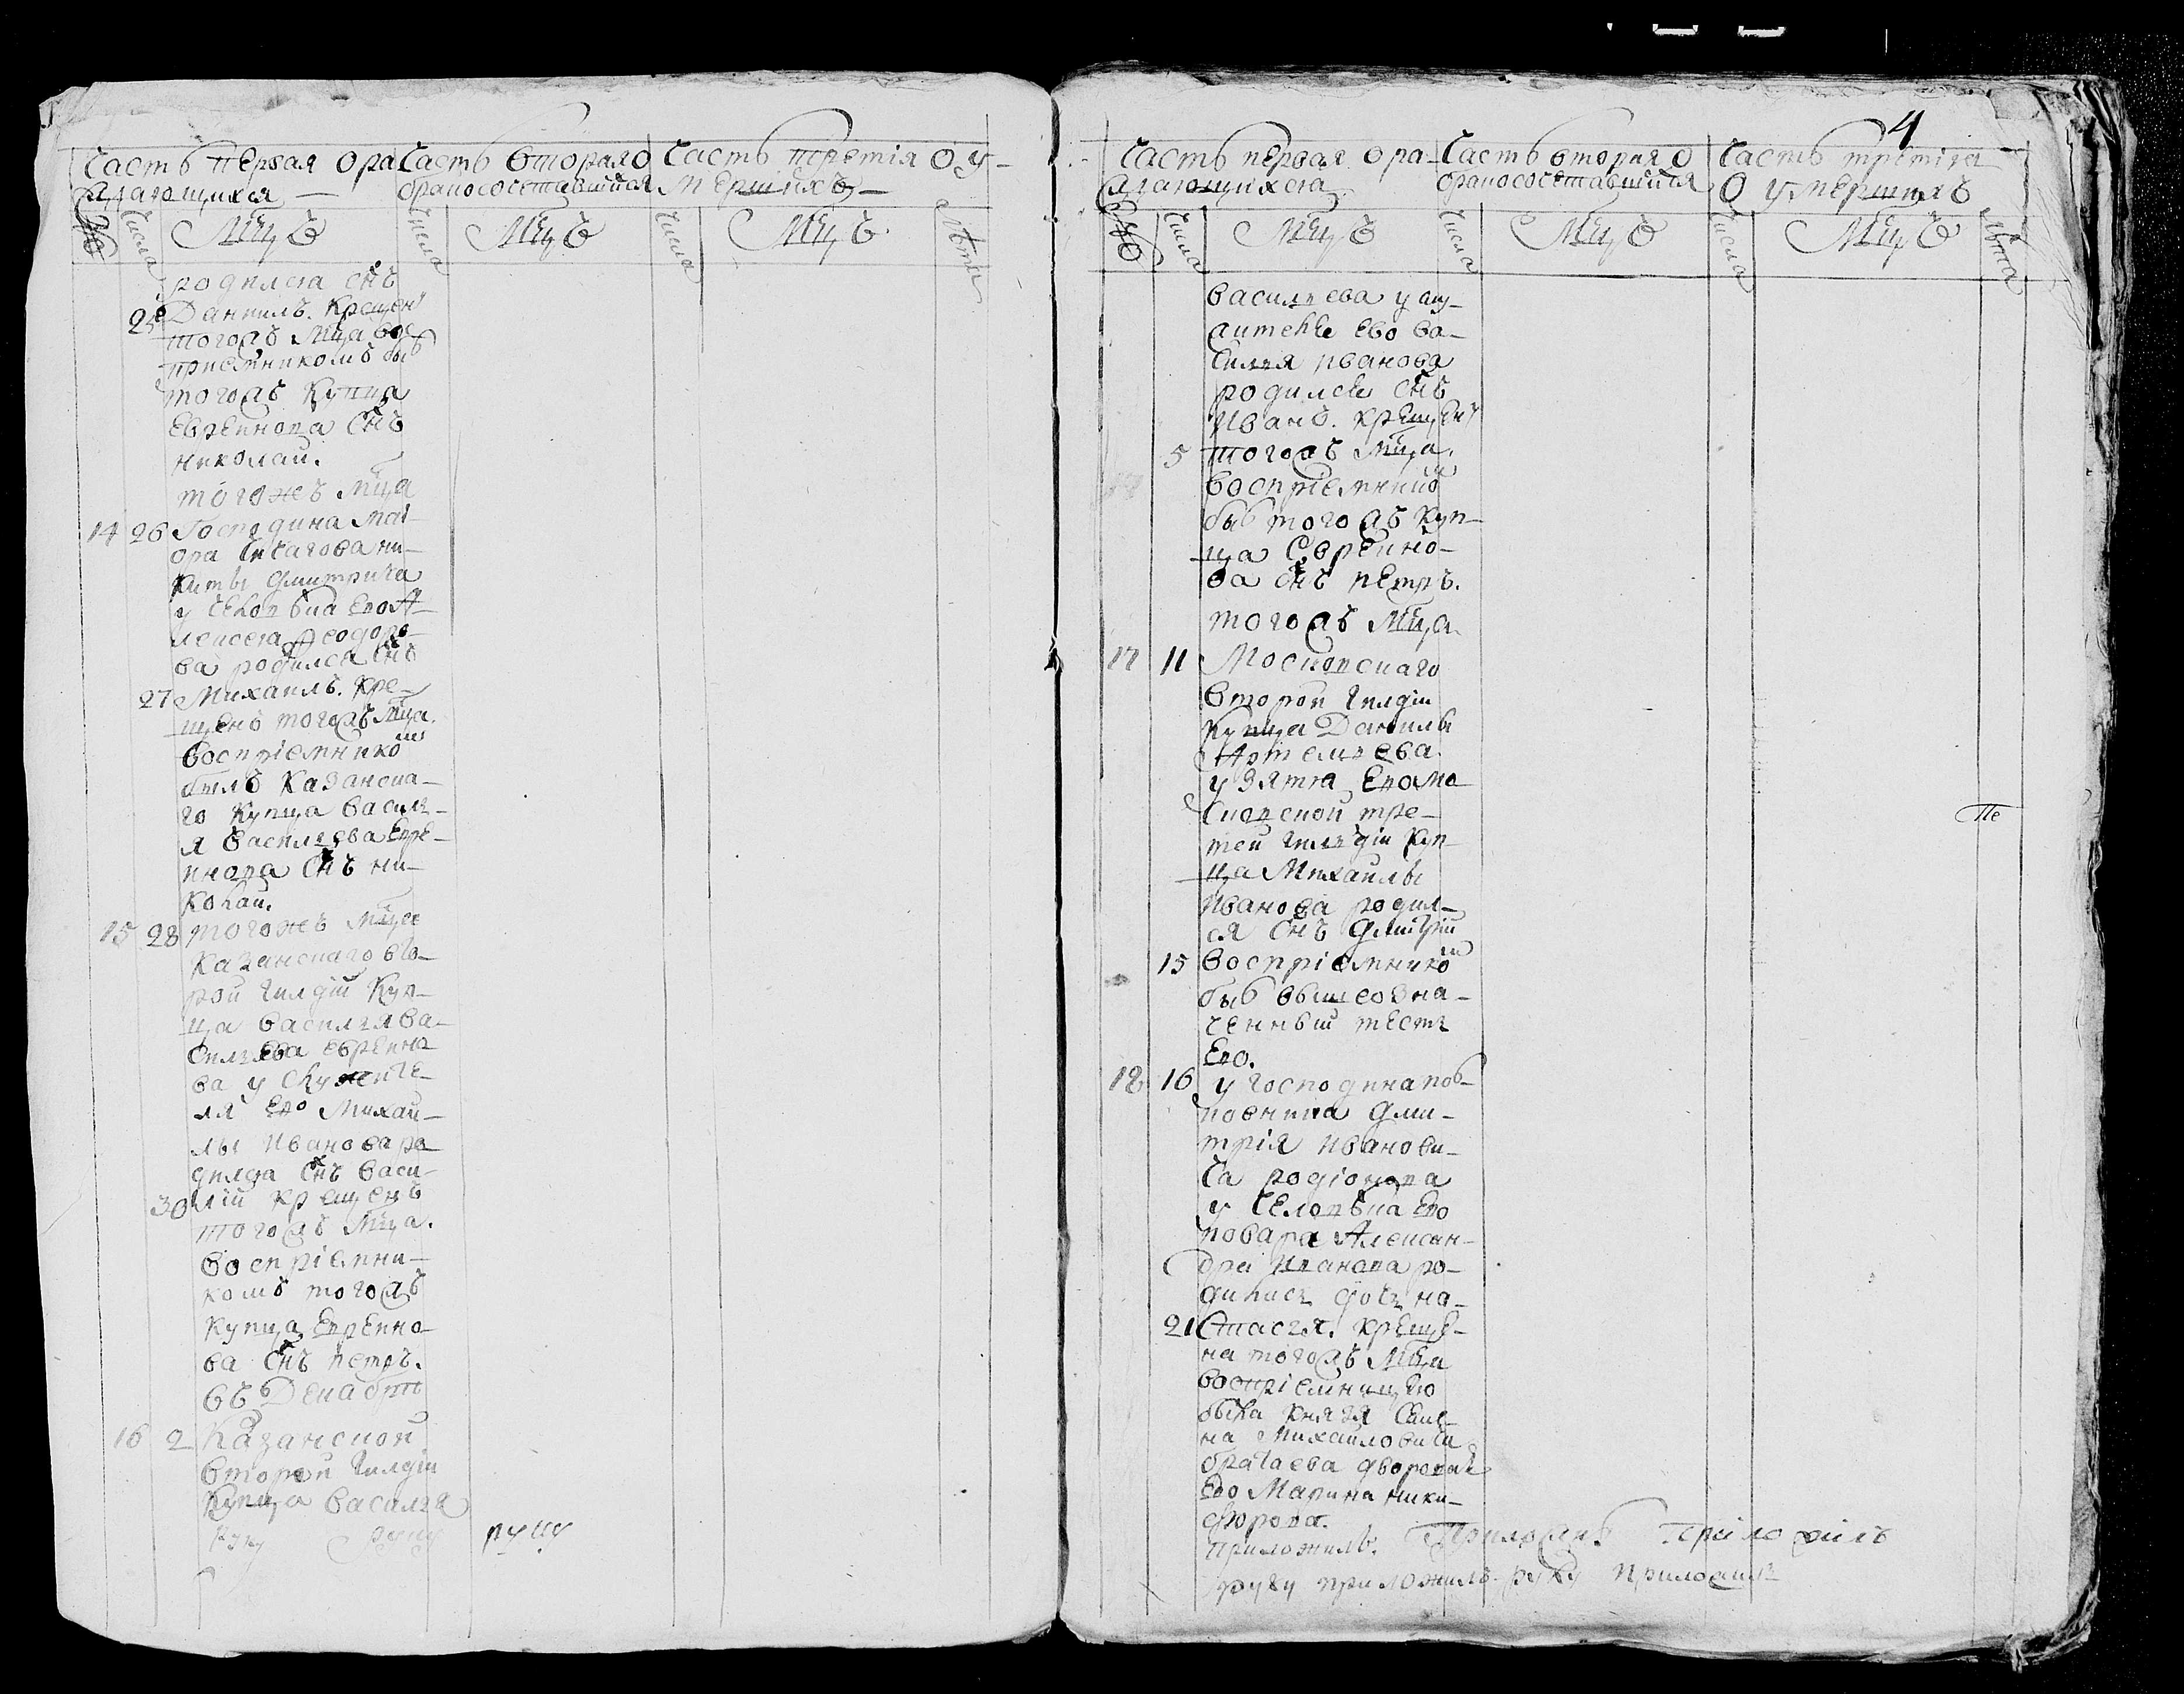 Часть первая о ра
ждающихся
Часть вторая о
бракосоставшихся
Часть третія о у-
мершихъ
числа
Мцъ
числа
Мцъ
числа
Мцъ
лѣта
родился снъ
25 Данилъ. крещенъ
тогожъ мца вос
приемникомъ бы
тогожъ купца
Евреинова снъ
николаи.
тогожъ мца
14 26 Господина маі
ора Чичагова ни-
киты дмитрича
у человѣка ево А-
леѯея Ѳеодоро-
ва родился снъ
27 Михаилъ. кре-
щенъ тогожъ мца.
воспріемнико
былъ казанска-
го купца василь-
я васильева Евре-
инова снъ ни-
колаи.
15 28 тогожъ мца
казанскаго вто-
рой гилдіи куп-
ца василья ва-
сильева евреино
ва у служите-
ля ево михаи-
лы иванова ро
дился снъ васи-
30 лій крещенъ
тогожъ мца.
воспріемни-
комъ тогожъ
купца Евреино
ва снъ петръ.
въ Декабрѣ
16 2 Казанской
второй гилдіи
купца василья
руку руку руку
4
Часть первая о ра-
ждающихся
Часть вторая о
бракосоставшихся
Часть третія
о умершихъ
числа
Мцъ
числа
Мцъ
числа
Мцъ
лѣта
васильева у слу-
жителя ево ва-
силья иванова
родился снъ
иванъ. крещенъ
5 тогожъ мца.
воспріемникомъ
бы тогожъ куп-
ца Евреино-
ва снъ петръ.
тогожъ мца
17 11 Московскаго
второй гилдіи
купца Данилы
Артемьева.
у зятя ево мо
сковской тре-
теи гильдіи куп
ца Михаилы
иванова родил-
ся снъ дмитрій
15 воспріемнико
бы вышеозна-
ченныи тесть
ево.
18 16 у господина пол-
ковника дми-
трія иванови-
ча родіонова
у человѣка ево
повара Алексан-
дра иванова ро-
дилась дочь на-
21 стасья. креще-
на тогожъ мца
воспріемницею
была князя Семе-
на михаиловича
баратаева дворовая
ево Марина ники-
форова.
приложилъ. Приложилъ приложилъ
руку приложилъ руку приложилъ